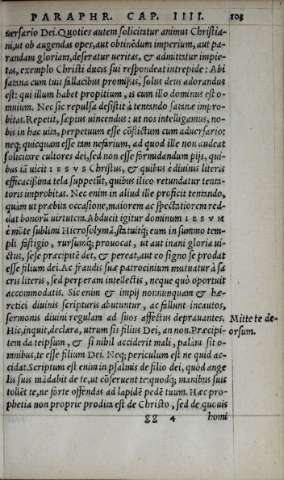 PARAPHR. CAP. IIII. 103
uersario Dei. Quoties autem solicitatur animus Christia-
ni, ut ob augendas opes, aut obtinẽdum imperium, aut pa-
randam gloriam, deseratur ueritas, & admittatur impie-
tas, exemplo Christi ducis sui respondeat intrepide: Abi
satana cum tuis fallacibus promissis, solus deus adorandus
est: qui illum habet propitium, is cum illo dominus est o-
mnium. Nec sic repulsa desistit à tentando satanæ impro-
bitas. Repetit, sæpius uincendus: ut nos intelligamus, no-
bis in hac uita, perpetuum esse cõflictum cum aduersario:
neq; quicquam esse tam nefarium, ad quod ille non audeat
solicitare cultores dei, sed non esse formidandum pijs, qui-
bus tã uicit IESVS Christus, & quibus è diuinis literis
efficacissima tela suppetũt, quibus illico retundatur tenta-
toris improbitas. Nec enim in aliud ille proficit tentando,
quàm ut præbita occasione, maiorem ac spectatiorem red-
dat bonorũ uirtutem. Abducit igitur dominum IESVM
è mõte sublimi Hierosolymã, statuitq; eum in summo tem-
pli fastigio, rursumq; prouocat, ut aut inani gloria ui-
ctus, sese præcipitẽ det, & pereat, aut eo signo se prodat
esse filium dei. Ac fraudi suæ patrocinium mutuatur à sa
cris literis, sed perperam intellectis, neque quò oportuit
accommodatis. Sic enim & impij nonnunquam & hæ-
retici diuinis scripturis abutuntur, ac fallunt incautos,
sermonis diuini regulam ad suos affectus deprauantes.
Mitte te de-
orsum.
Hic, inquit, declara, utrum sis filius Dei, an non. Præcipi-
tem da teipsum, & si nihil acciderit mali, palàm sit o-
mnibus, te esse filium Dei. Neq; periculum est ne quid ac-
cidat. Scriptum est enim in psalmis de filio dei, quòd ange
lis suis mãdabit de te, ut cõseruent te: quodq; manibus suis
tollẽt te, ne forte offendas ad lapidẽ pedẽ tuum. Hæc pro-
phetia non proprie prodita est de Christo, sed de quouis
ZZ 4 homi